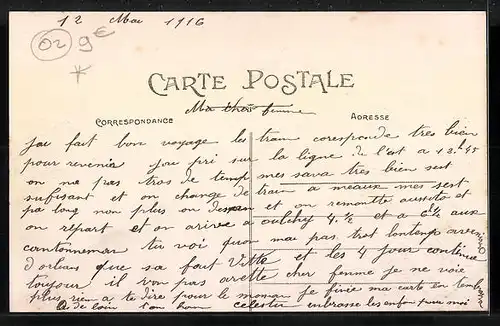 12 Mai 1916
02 9€
CARTE POSTALE
Ma chère femme
CORRESPONDANCE ADRESSE
jai fait bon voyage les train coresponde tres bien
pour revenir jai pri sur la ligne de l'est a 12h45
on ma pas tros de temp mes sava tres bien seit
sufisant et on change de train a meaux mes sest
pa long non plus on desan et on remontte ausito et
on repart et on arive a oulchy 4.½ et a 6h½ aux
cantonnement tu voi quon mai pas trot lontemp
d'orlans que sa fout Vitte et les 4 jour continue
toujour il von pas arette cher femme je ne voie
plus rien a te dire pour le moman je finie ma carte en
de loin ton bon celestin enbrasse les enfan pour moi